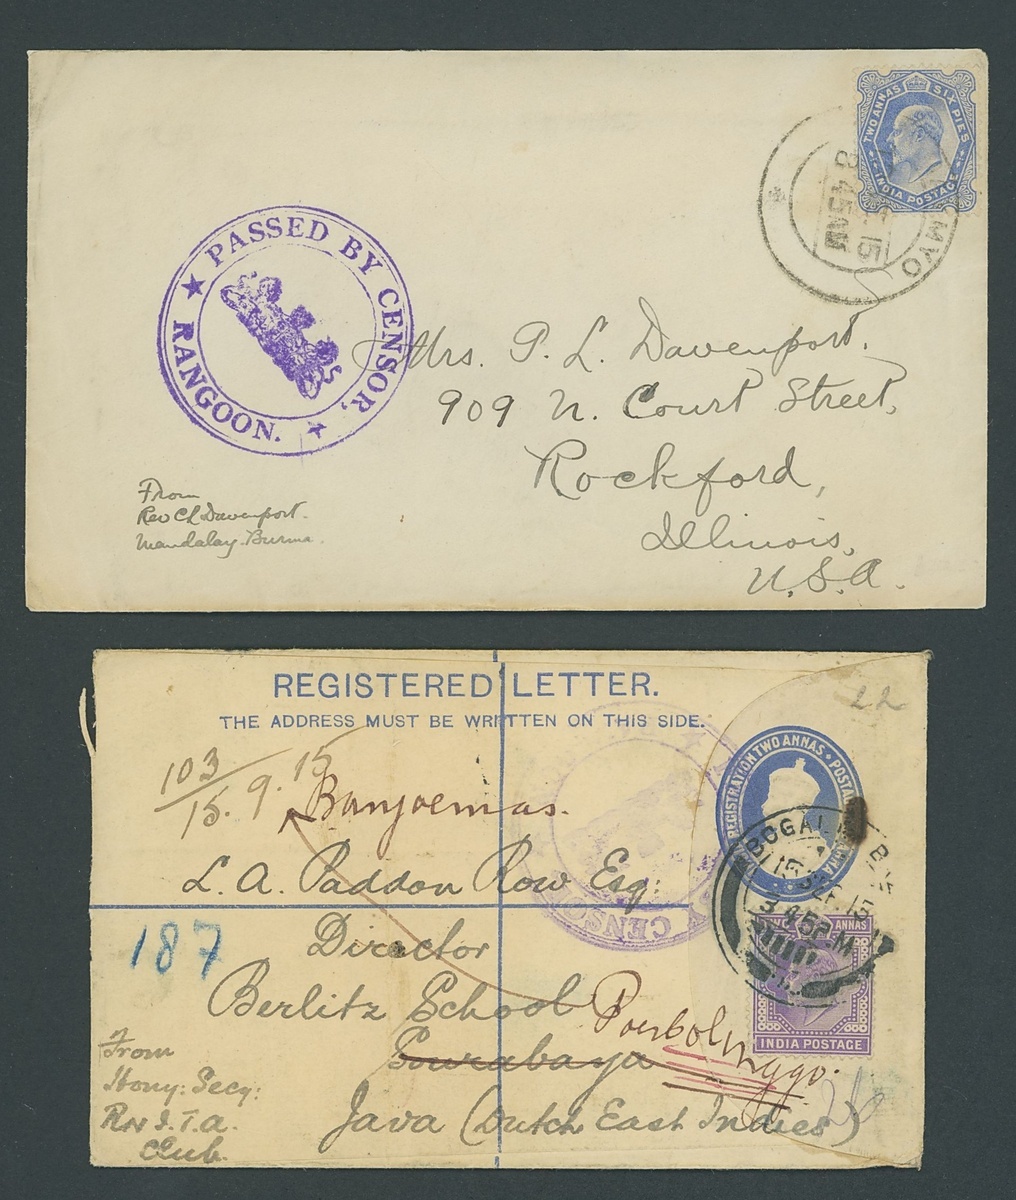 TWO ANNAS SIX PIES
INDIA POSTAGE
15
8 45AM
PASSED BY CENSOR,
RANGOON.
Mrs. P. L. Davenport.
909 N. Court Street,
Rockford,
Illinois,
U.S.A.
From
Rev CL Davenport.
Mandalay. Burma.
REGISTERED LETTER.
THE ADDRESS MUST BE WRITTEN ON THIS SIDE.
22
103
15. 9. 15
Banjoemas.
REGISTRATION TWO ANNAS POSTAGE
L. A. Paddon Row Esq:
15 SEP. 15
3 45PM
187
CENSOR
Director
ANNAS
Berlitz School
Poerbolinggo.
Sourabaya
INDIA POSTAGE
Java (Dutch East Indies)
From
Hony: Secy:
Rn I.T.A.
Club.